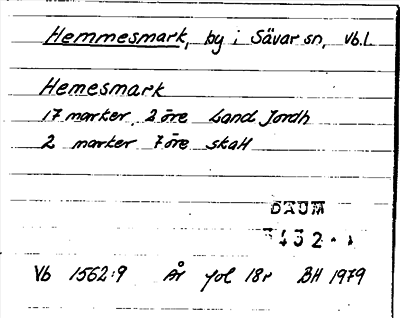 Hemmesmark, by i Sävar sn, Vb.l.
Hemesmark
17 marker, 2 öre Land Jordh
2 marker 7 öre skatt
DAUM
3432.1
Vb 1562:9 År fol 18r BH 1979